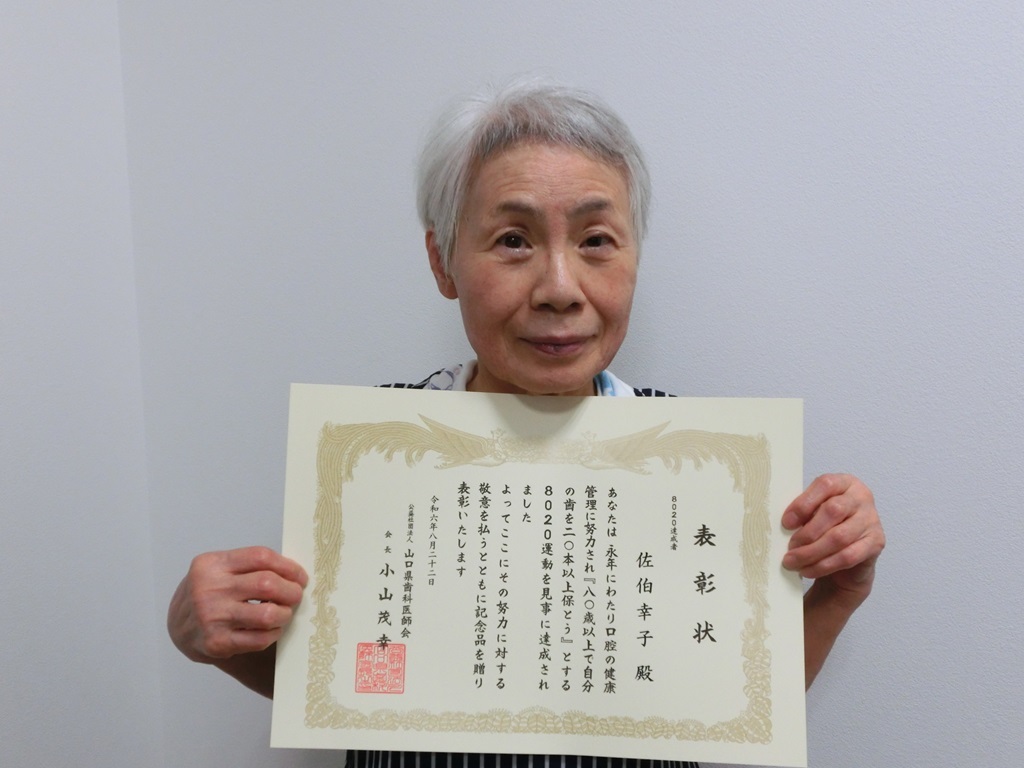 表彰状
8020達成者
佐伯幸子 殿
あなたは 永年にわたり口腔の健康
管理に努力され『八〇歳以上で自分
の歯を二〇本以上保とう』とする
8020運動を見事に達成され
ました
よってここにその努力に対する
敬意を払うとともに記念品を贈り
表彰いたします
令和六年八月二十二日
公益社団法人 山口県歯科医師会
会長 小山茂幸